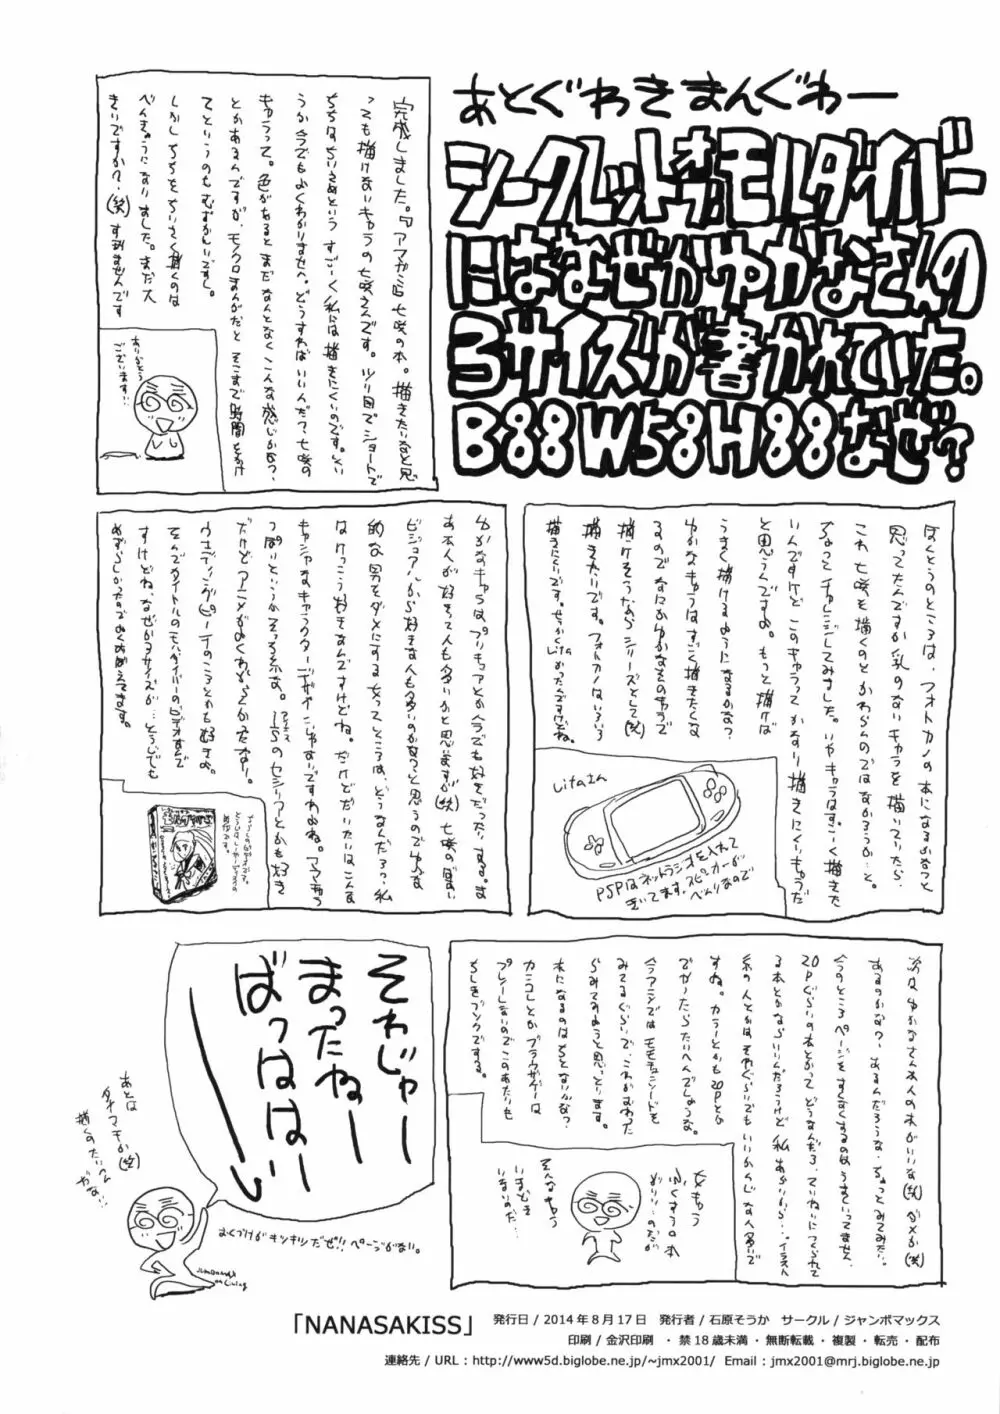 あとぐわきまんぐわー
シークレットオブモルダイバー
にはなぜかゆかなさんの
3サイズが書かれていた。
B88W58H88なぜ?
完成しました。『アマガミ』七咲の本。描きたいなと思
っても描けないキャラの七咲さんです。ツリ目でショートで
ちちはちいさめという すごーく私には描きにくいのです。しょ
うか今でもよくわかりませんぺ。どうすればいいんだ?七咲の
キャラって。色があるとまだなんとなくこんな感じかな?
とかあるんですが、モノクロまんがだと そこまで時間をかけ
てというのもむずかしいですし。
しかし ちちをちいさく描くのは
べんきょうになりました。まだ大
きいですか?(笑)すみませんです
ありがとう
ございます!!
ほんとうのところは、フォトカノの本になるかなっと
思ってたんですが乳のないキャラを描いていたら、
これ 七咲を描くのとかわらんのではなかろうか…と。
ちょっとチャレンジしてみました。いやキャラはすごーく描きた
いんですけど このキャラって かなり描きにくいキャラだ
と思うんですよ。もっと描けば
うまく描けるようになるかな?
ゆかなキャラはすごく描きたくな
るのでなにかゆかなものキャラで
描けそうならシリーズとして(笑)
描きたいです。フォトカノはいろいろ
描きにくいです。せっかくLitaかったんですけどね。
Litaさん
PSPはネットラジオを入れて
きいてます。スピーカーが
べんりなので
ゆかなキャラはプリキュアとか今でも好きだったりする。ま
あ本人が好きって人も多いかと思いますが(笑)七咲の場合
ビジュアルから好きな人も多いのかなっと思うのでゆかな
的な男をダメにする女ってところは、どうなんだろ?私
はけっこう好きなんですけどね。だけどだいたいはこんな
キャシャなキャラクターデザインじゃないですわよね。アマあまっ
っぽりというかそっち系な。I'Sのセシリアとかも好き
だけどアニメがよくわからなかったなー。
ウェディングピーチのころとかも好きよ。
そんでタイトルのモルダイバーのビデオなんで
すけどね、なぜか3サイズが…どうしても
めずらしかったのでよくおぼえてます。
次は ゆかなさん本人の本がいいな(笑)ダメか(笑)
あるのかな?あるんだろうな、ちょっとみてみたい。
今のところページをすくなくするのはうまくいってません。
20Pぐらいの本とかって どうなんだろ、ていねいにつくられて
る本とかならいいんだろうけど 私 あかいから…イラスト
系の人とかは それぐらいでもいいかんじな人多いで
すね。カラーとかも20Pとか
でかったらたいへんでしょうな。
今アニメではモモキュンソードを
みてるぐらいで、これがおわった
らみてみようと思っています。
本になるのはちとないかな?
カンコレとかブラウザゲーは
プレーしないのでこのあたりも
ちしきブソクですな。
そんなもう
いまどき
いないのだ…
それじゃー
まったねー
ばっはは〜い
あとは
タナマモか(笑)
描くのたいへん
だな!!
おくづけがキツキツだぜ!!ページがない。
「NANASAKISS」 発行日/2014年8月17日 発行者/石原そうか サークル/ジャンボマックス
印刷/金沢印刷 ・禁18歳未満・無断転載・複製・転売・配布
連絡先/URL:http://www5d.biglobe.ne.jp/~jmx2001/ Email:jmx2001@mrj.biglobe.ne.jp